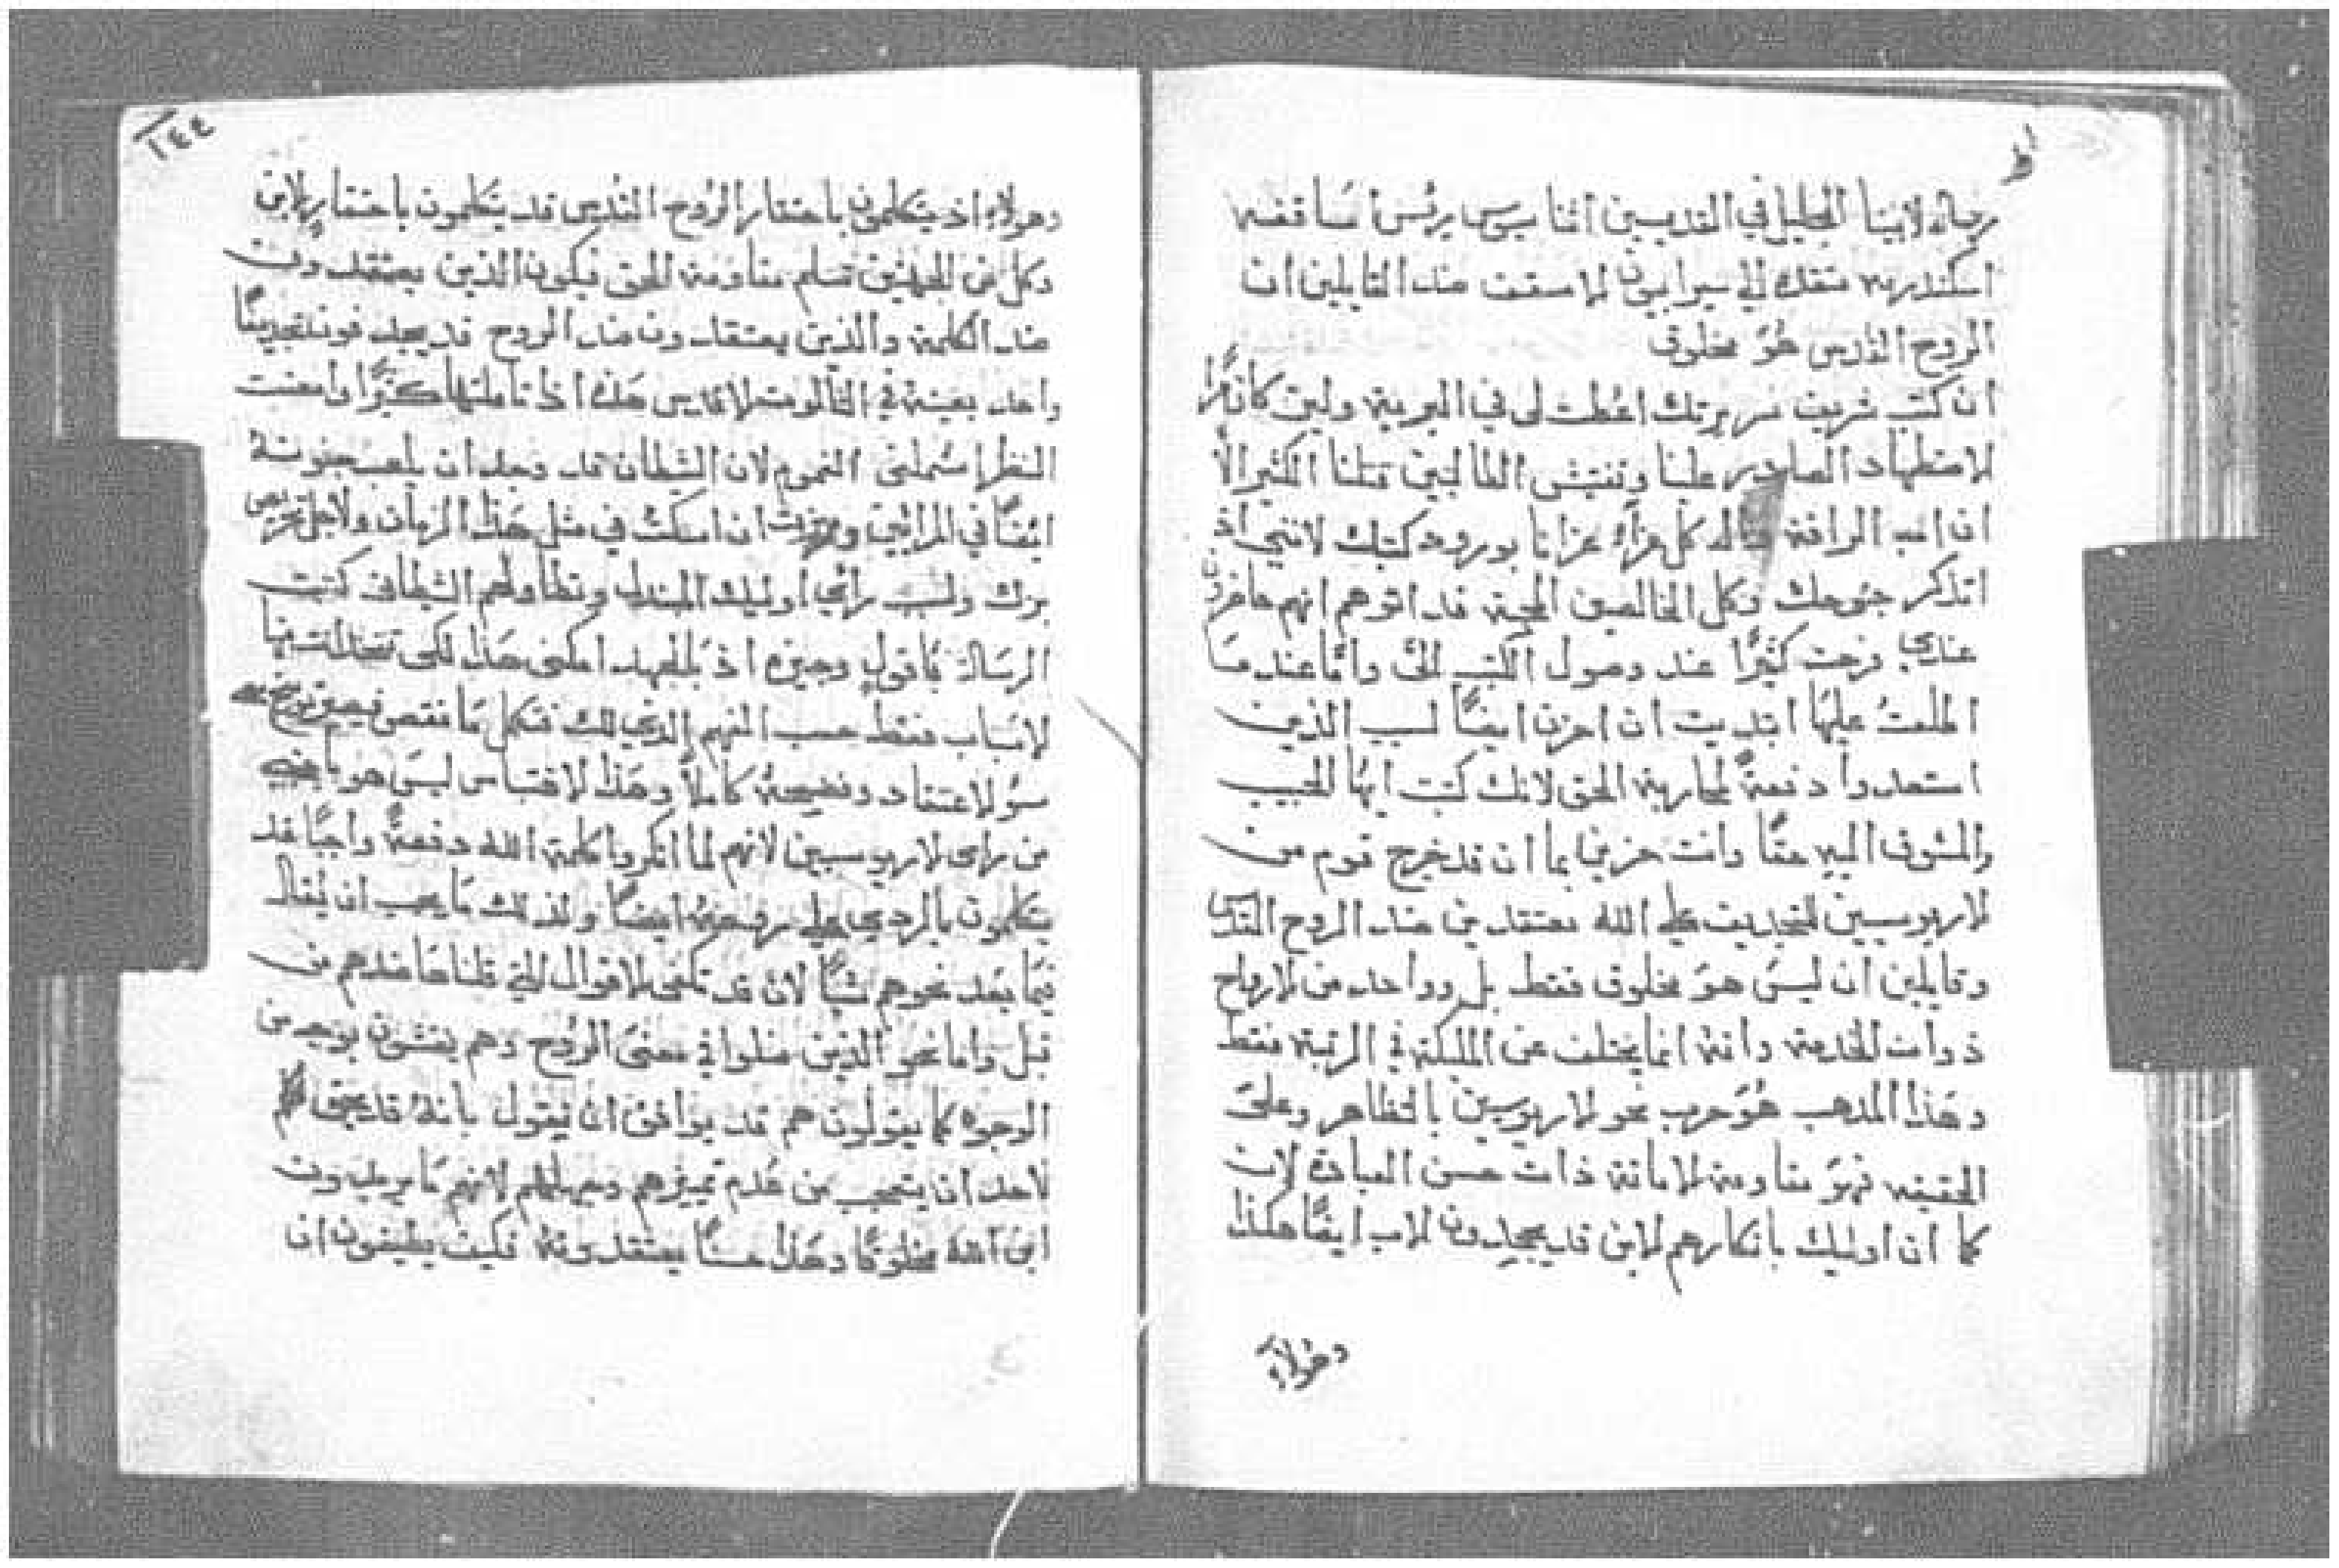 رساله لابينا الجليل في القديسين اثناسيوس ريس اساقفه
اسكندريه منفذه الي سيرابيون الاسقف ضد القايلين ان
الروح القدس هُوَ مخلوق
ان كتب شريف سريرتك اعُطت لى في البرية ولين كان مرًا
الاضطهاد الصادر علينا وتفتيش الطالبين قتلنا الكثير الا
ان اب الرافة واله كل عزاءٍ عزانا بورود كتبك لانني اذ
اتذكر جنوحك وكل الخالصين المحبة قد اتوهم انهم حاضرون
عندي فرحت كثيرًا عند وصول الكتب اليَّ وامَّا عندمَا
اطلعتُ عليهَا ابتديت ان احزن ايضًا لسبب الذين
استعدوا دفعةً لمحاربة الحق لانك كتبت ايهُا الحبيب
والمشوق اليهِ حقًا وانت حزين بما ان قد خرج قوم من
الاريوسيين للتجديف على الله معتقدين ضد الروح القدس
وقايلين ان ليسَ هوَ مخلوق فقط بل وواحد من الارواح
ذوات الخدمة وانهُ انما يختلف عن المليكة في الرتبة فقط
وهَذا المذهب هُوَ حرب نحو الاريوسيين بالظاهر وعلىَ
الحقيقه فهوَ مقاومة للامانة ذات حسن العبادة لان
كما ان اوليك بانكارهم الابن قد يجحدون الاب ايضًا هكذا
وهَولآءِ
١٤٤
وهولاءِ اذ يتكلمون باحتقار الرُوح القُدس قد يتكلمون باحتقار بالابن
وكل من الجهتين تسلم مقاومة الحق فيكون الذين يعتقدون
ضد الكلمة والذين يعتقدون ضد الروح قد يجد فونتجديفًا
واحد بعينهِ في الثالوث الاقدس هَذه اذ تاملتها كثيرًا وامعنت
النظر اشملني الغموم لان الشيطان قد وجد ان يلعب بجنونهُ
ايضًا في المرائين وعزمت ان اسكت في مثل هَذا الزمان ولاجل تحريض
برك ولسبب راي اوليك المبتدل وتطاولهم الشيطاني كتبت
الرسَالة بَاقوال وجيزه اذ بَالجهد امكني هَذا لكى تتخذ انت منها
الاسباب فقط حسب الفهم الذي لك فتكمل مَا نقص فيصير توبيخ
سوُ الاعتقاد وفضيحتهُ كاملًا وهَذا الاقتباس ليسَ هو باجنبي
من راى الاريوسيين لانهم لما انكروا كلمة الله دفعةً واجبًا قد
يتكلمون بالردي على روحهِ ايضًا ولذلك مَا يجب ان يُقال
فيمَا بَعد نحوهم شيًا لان قد تكفى الاقوال التي قلناهَا ضدهم من
قبل واما نحو الذين ضلوا في معنىَ الرُوح وهم يفتشون بوجه من
الوجوه كما يقولون هم قد يوافق ان نقول بانهُ قد يحق
لاحد ان يتعجب من عُدم تمييزهم وجهلهم لانهم مَا يريدون
ابن الله مخلوقًا وهَذا حسنًا يعتقدونهُ فكيف يطيقون ان